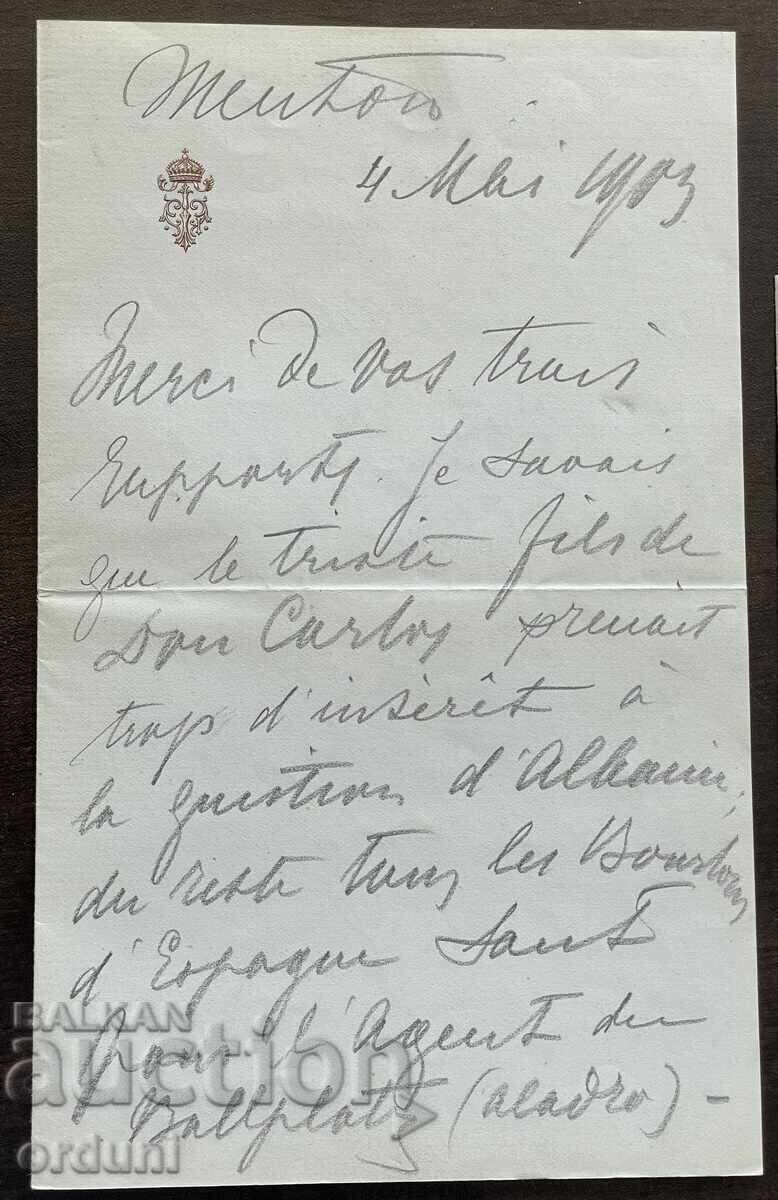 Menton
4 Mai 1903
Merci de vos trois
rapports. Je savais
que le triste fils de
Don Carlos prenait
trop d'intérêt à
la question d'Albanie,
du reste tous les Bourbons
d'Espagne sont
pour l'Agent du
Ballplatz (Aladro) –
BALKAN
auction
orduni